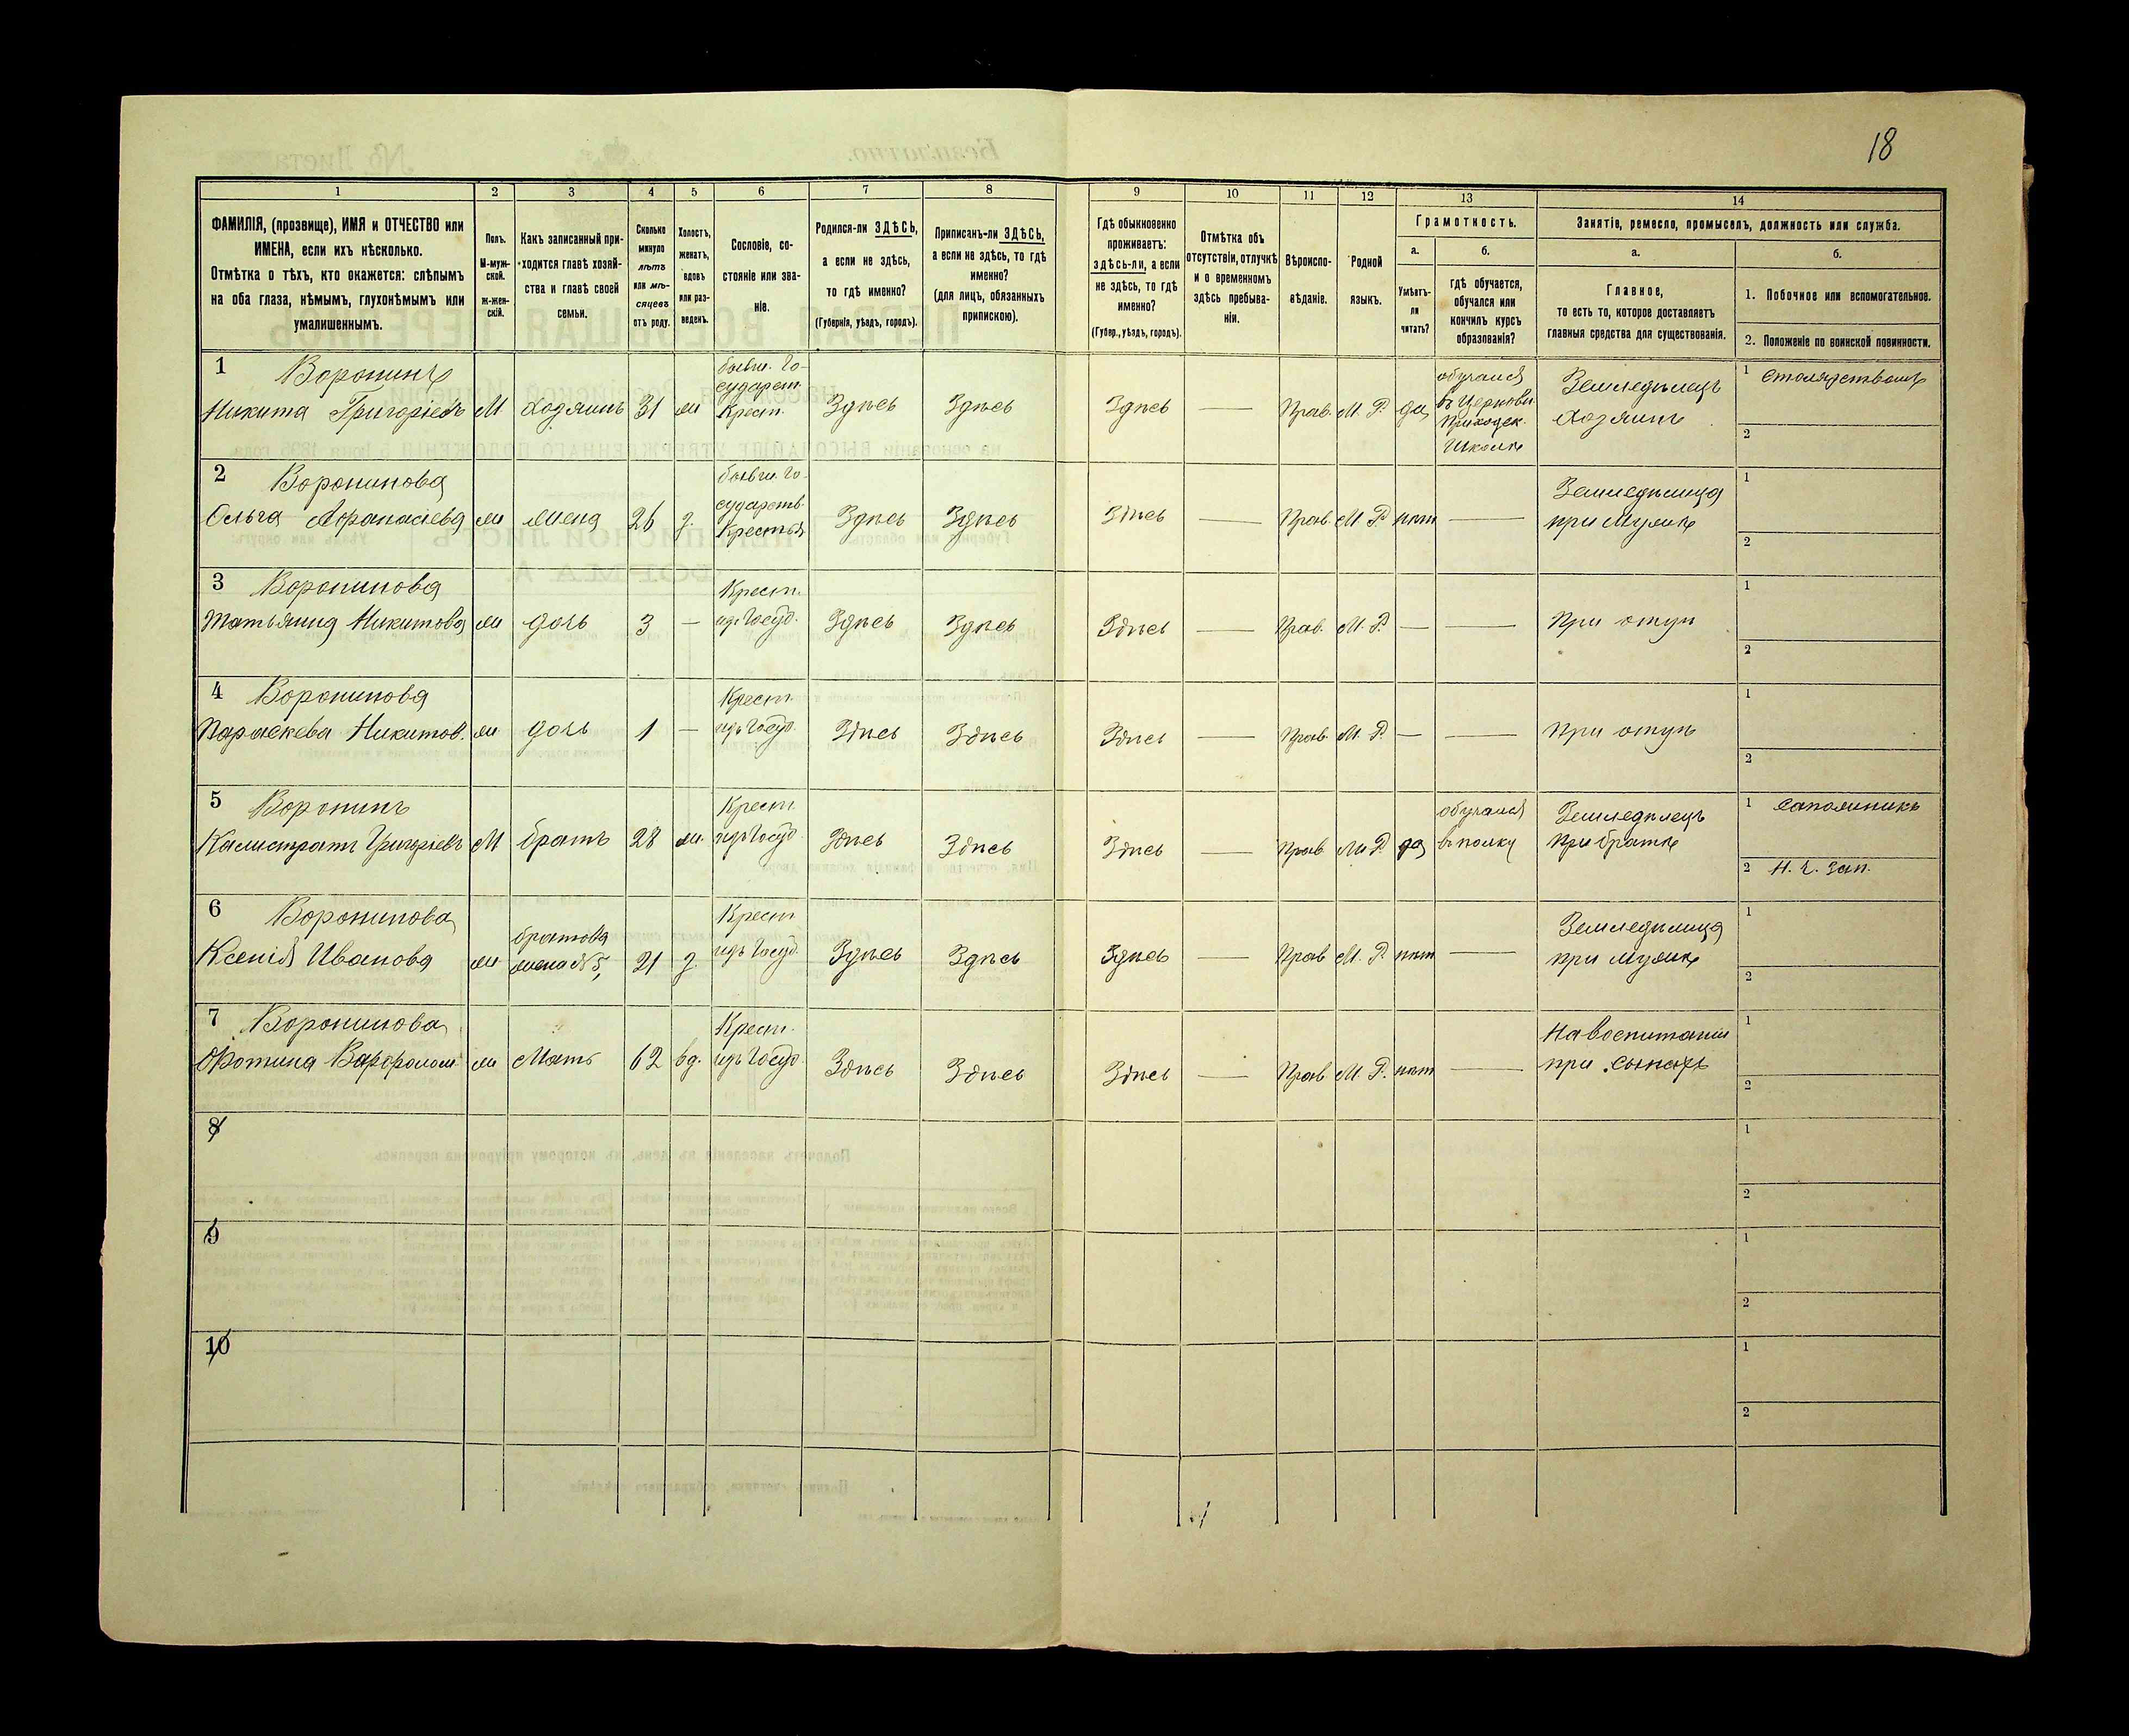 18
1 2 3 4 5 6 7 8 9 10 11 12 13 14
ФАМИЛІЯ, (прозвище), ИМЯ и ОТЧЕСТВО или
ИМЕНА, если ихъ нѣсколько.
Отмѣтка о тѣхъ, кто окажется: слѣпымъ
на оба глаза, нѣмымъ, глухонѣмымъ или
умалишеннымъ.
Полъ.
М-муж-
ской.
ж-жен-
скій.
Какъ записанный при-
ходится главѣ хозяй-
ства и главѣ своей
семьи.
Сколько
минуло
лѣтъ
или мѣ-
сяцевъ
отъ роду.
Холостъ,
женатъ,
вдовъ
или раз-
веденъ.
Сословіе, со-
стояніе или зва-
ніе.
Родился-ли ЗДѢСЬ,
а если не здѣсь,
то гдѣ именно?
(Губернія, уѣздъ, городъ).
Приписанъ-ли ЗДѢСЬ,
а если не здѣсь, то гдѣ
именно?
(для лицъ, обязанныхъ
припискою).
Гдѣ обыкновенно
проживаетъ:
здѣсь-ли, а если
не здѣсь, то гдѣ
именно?
(Губер., уѣздъ, городъ).
Отмѣтка объ
отсутствіи, отлучкѣ
и о временномъ
здѣсь пребыва-
ніи.
Вѣроиспо-
вѣданіе.
Родной
языкъ.
Грамотность.
а.
Умѣетъ-
ли
читать?
б.
гдѣ обучается,
обучался или
кончилъ курсъ
образованія?
Занятіе, ремесло, промыселъ, должность или служба.
а.
Главное,
то есть то, которое доставляетъ
главныя средства для существованія.
б.
1. Побочное или вспомогательное.
2. Положеніе по воинской повинности.
1 Воронинъ бывш. Го- обучался 1 столярствомъ
сударст. въ Церковн. Земледѣлецъ
Никита Григорьевъ М хозяинъ 31 ж Крест. Здѣсь Здѣсь Здѣсь — Прав. М. Р. да Приходск. хозяинъ
Школѣ 2
2 Воронинова бывш. Го- 1
сударств. Земледѣлица
Ольга Афанасіева ж жена 26 з. Крестья Здѣсь Здѣсь Здѣсь — Прав. М. Р. нѣт — при Мужѣ
2
3 Воронинова Крест. 1
Татьяна Никитова ж дочь 3 — изъ Госуд. Здѣсь Здѣсь Здѣсь — Прав. М. Р. — — При отцѣ
2
4 Воронинова Крест. 1
Параскева Никитов. ж дочь 1 — изъ Госуд. Здѣсь Здѣсь Здѣсь — Прав. М. Р. — — При отцѣ
2
5 Воронинъ Крест. обучался Земледѣлецъ 1 сапожникъ
Калистратъ Григорьевъ М братъ 28 ж. изъ Госуд. Здѣсь Здѣсь Здѣсь — Прав М. Р да въ полку При братѣ
2 Н. Ч. зап.
6 Воронинова братова Крест Земледѣлица 1
Ксенія Иванова ж жена №5, 21 з. изъ Госуд. Здѣсь Здѣсь Здѣсь — Прав М. Р. нѣт — при мужѣ
2
7 Воронинова Крест. На воспитаніи 1
Фотина Варфолом. ж Мать 62 вд. изъ Госуд. Здѣсь Здѣсь Здѣсь — Прав М. Р. нѣт — при сынахъ
2
8 1
2
9 1
2
10 1
2